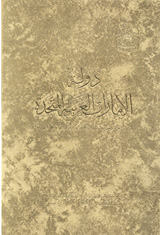 دولة
الإمارات العربية المتحدة